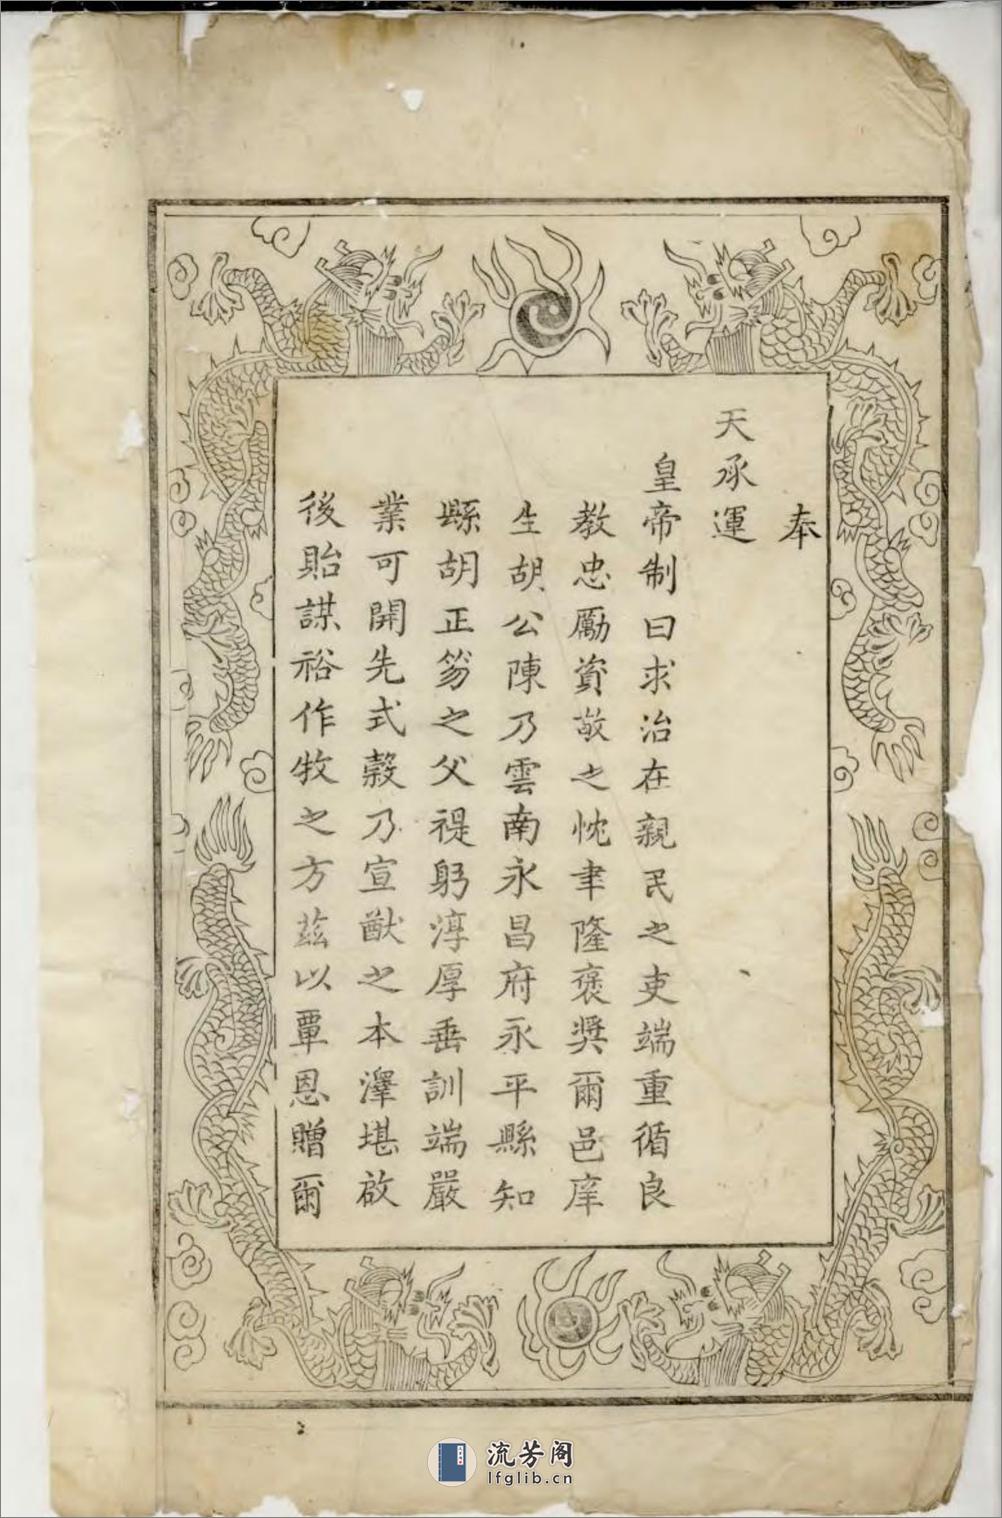 奉
天承運
皇帝制曰求治在親民之吏端重循良
教忠勵資敬之忱聿隆褒奬爾邑庠
生胡公陳乃雲南永昌府永平縣知
縣胡正笏之父禔躬淳厚垂訓端嚴
業可開先式穀乃宣猷之本澤堪啟
後貽謀裕作牧之方茲以覃恩贈爾
流芳阁
lfglib.cn